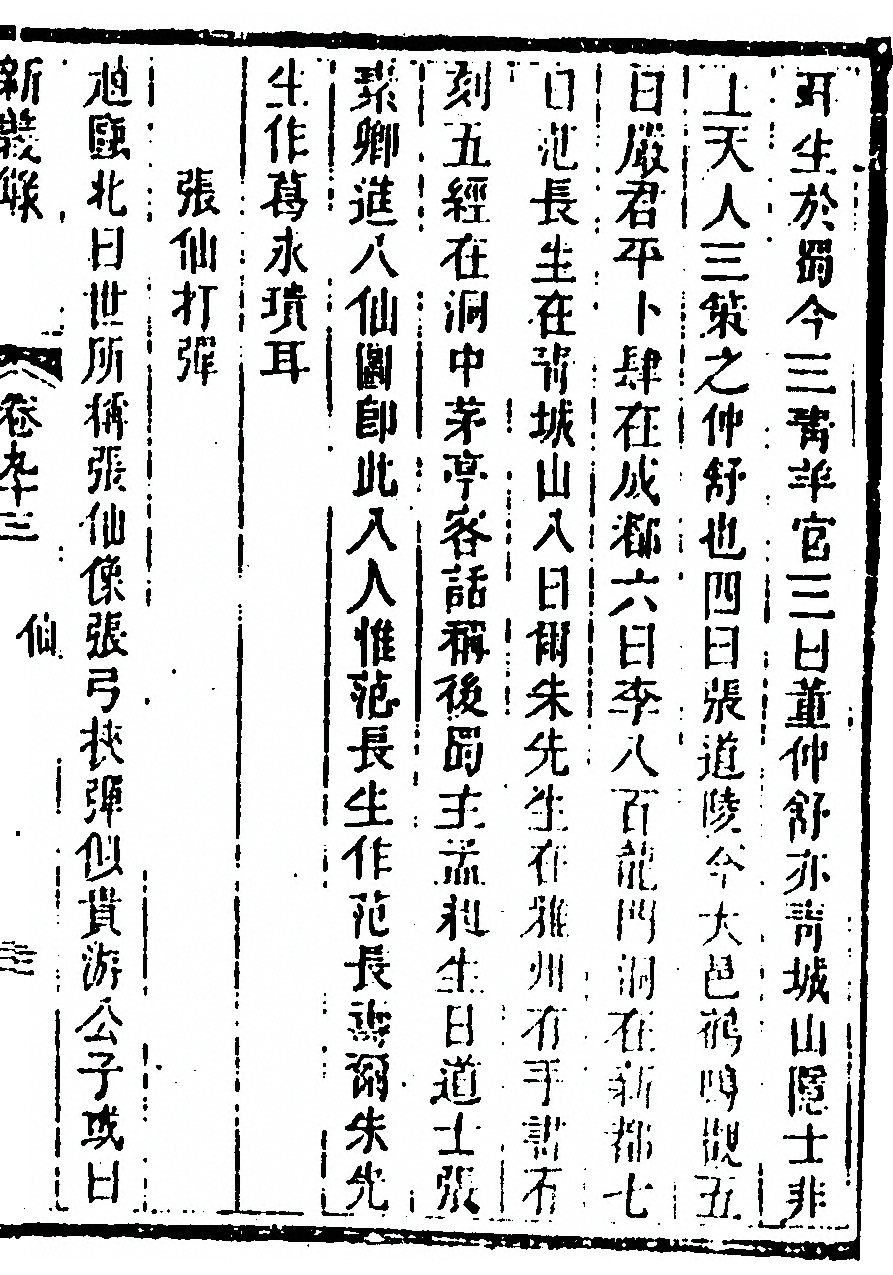 耳生於蜀今三青羊宮三曰董仲舒亦青城山隱士非
上天人三策之仲舒也四曰張道陵今大邑鶴鳴觀五
曰嚴君平卜肆在成都六曰李八百龍門洞在新都七
曰范長生在青城山八曰爾朱先生在雅州有手書石
刻五經在洞中茅亭客話稱後蜀主孟昶生日道士張
素卿進八仙圖卽此八人惟范長生作范長壽爾朱先
生作葛永璝耳
張仙打彈
趙甌北曰世所稱張仙像張弓挾彈似貴游公子或曰
新義錄
卷九十三
仙
三